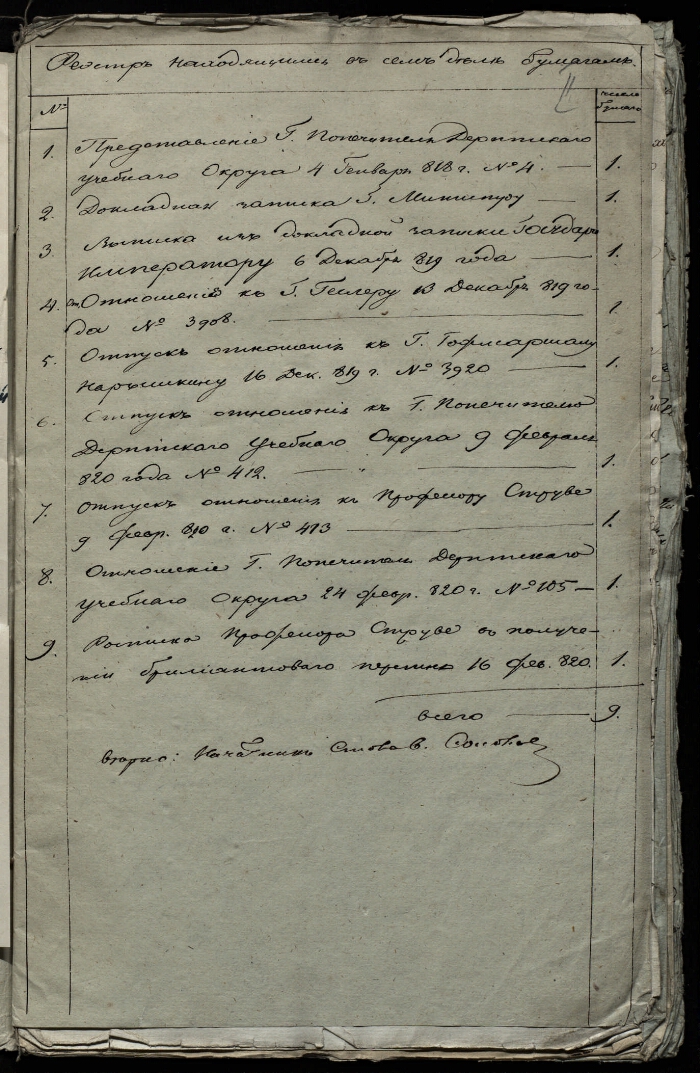 Реэстръ находящимся въ семъ дѣлѣ бумагамъ.
№
число бумагъ
1. Представленіе Г. Попечителя Дерптскаго
учебнаго Округа 4 Генваря 818 г. № 4. — 1.
2. Докладная записка Г. Министру — 1.
3. Выписка изъ докладной записки Государю
Императору 6 Декабря 819 года — 1.
4. Отношеніе къ Г. Геслеру 13 Декабря 819 го-
да № 3908. — 1.
5. Отпускъ отношенія къ Г. Гофмаршалу
Нарышкину 16 Дек. 819 г. № 3920 — 1.
6. Отпускъ отношенія къ Г. Попечителю
Дерптскаго Учебнаго Округа 9 Февраля
820 года № 412. — 1.
7. Отпускъ отношенія къ Професору Струве
9 февр. 820 г. № 413 — 1.
8. Отношеніе Г. Попечителя Дерптскаго
учебнаго Округа 24 февр. 820 г. № 105 — 1.
9. Росписка Професора Струве въ получе-
ніи брилиантоваго перстня 16 фев. 820. 1.
всего — 9.
вѣрно: Начальникъ Стола В.